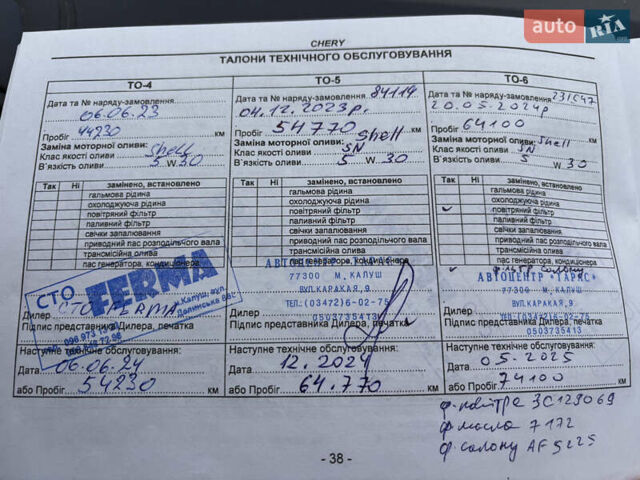 auto RIA.com
CHERY
ТАЛОНИ ТЕХНІЧНОГО ОБСЛУГОВУВАННЯ
ТО-4
Дата та № наряду-замовлення
06.06.23
Пробіг 44230 км
Заміна моторної оливи: Shell
Клас якості оливи
В`язкість оливи 5 W 30
Так Ні замінено, встановлено
гальмова рідина
охолоджуюча рідина
повітряний фільтр
паливний фільтр
свічки запалювання
приводний пас розподільчого вала
трансмісійна олива
пас генератора, кондиціонера
СТО FERMA
Дилер СТО FERMA
Підпис представника Дилера, печатка
Наступне технічне обслуговування:
Дата 06.06.24
або Пробіг 54230 км
ТО-5
Дата та № наряду-замовлення 84114
04.12.2023р.
Пробіг 54770 км
Заміна моторної оливи: Shell
Клас якості оливи SN
В`язкість оливи 5 W 30
Так Ні замінено, встановлено
гальмова рідина
охолоджуюча рідина
повітряний фільтр
паливний фільтр
свічки запалювання
приводний пас розподільчого вала
трансмісійна олива
пас генератора, кондиціонера
АВТОЦЕНТР "ТАРКС"
77300 М.КАЛУШ
ВУЛ.КАРАКАЯ,9
ТЕЛ.:(03472)6-02-75
0503735413
Дилер
Підпис представника Дилера, печатка
Наступне технічне обслуговування:
Дата 12.2024
або Пробіг 64.770 км
ТО-6
Дата та № наряду-замовлення 231647
20.05.2024р
Пробіг 64100 км
Заміна моторної оливи: Shell
Клас якості оливи SN
В`язкість оливи 5 W 30
Так Ні замінено, встановлено
гальмова рідина
охолоджуюча рідина
повітряний фільтр
паливний фільтр
свічки запалювання
приводний пас розподільчого вала
трансмісійна олива
пас генератора, кондиціонера
фільтр салону
АВТОЦЕНТР "ТАРКС"
77300 М.КАЛУШ
ВУЛ.КАРАКАЯ,9
ТЕЛ.:(03472)6-02-75
0503735413
Дилер
Підпис представника Дилера, печатка
Наступне технічне обслуговування:
Дата 05.2025
або Пробіг 74100 км
ф. повітря 3C129069
ф масла 7172
ф. салону AF5225
- 38 -